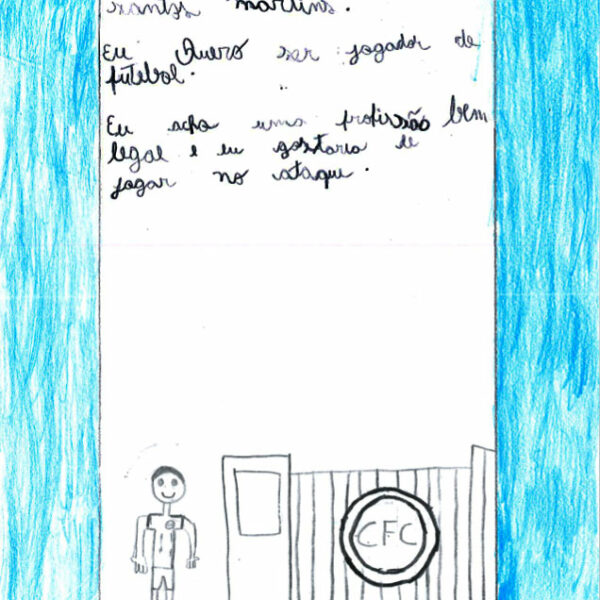 martins.
Eu Quero ser jogador de
futebol.
Eu acho uma profissão bem
legal e eu gostaria de
jogar no ataque.
CFC